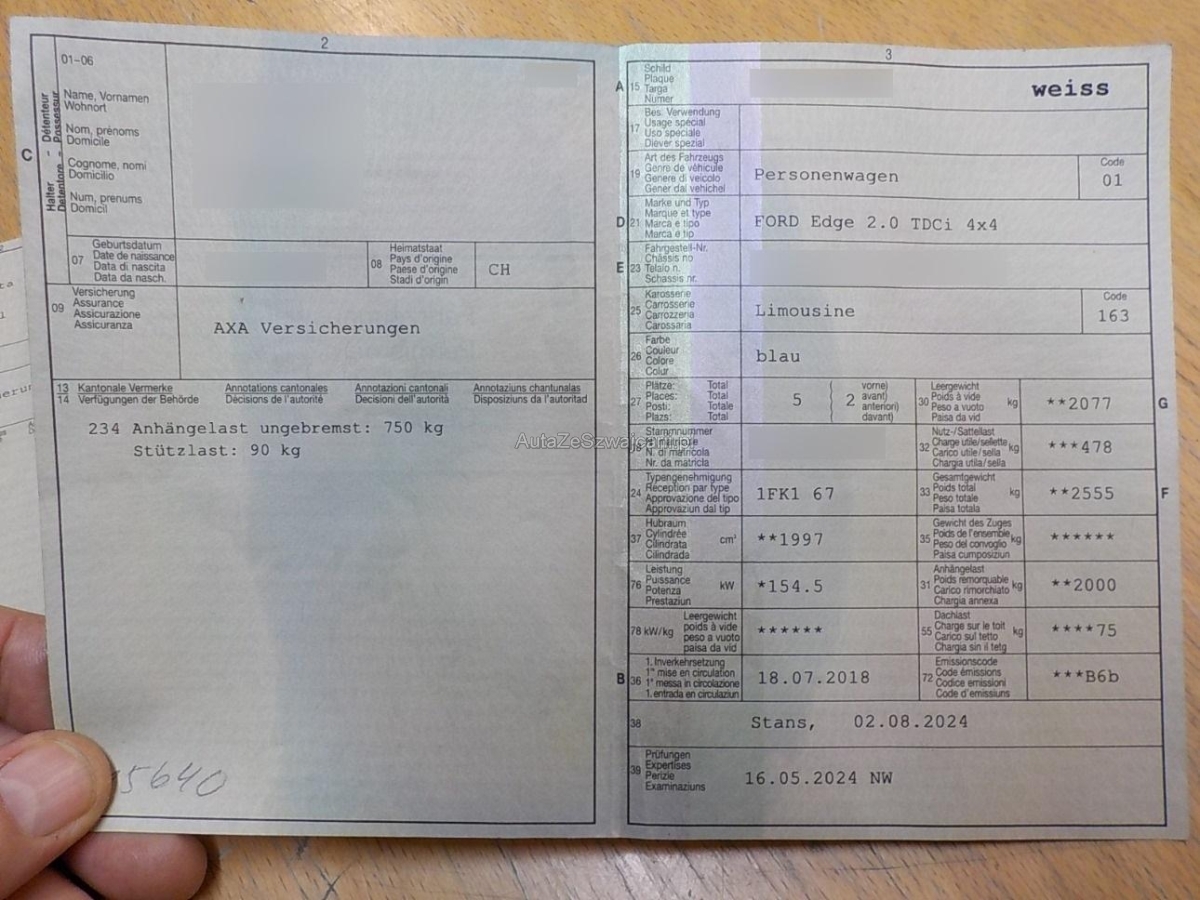 2
01-06
Halter - Détenteur
Detentore - Possessur
C
Name, Vornamen
Wohnort
Nom, prénoms
Domicile
Cognome, nomi
Domicilio
Num, prenums
Domicil
07
Geburtsdatum
Date de naissance
Data di nascita
Data da nasch.
08
Heimatstaat
Pays d'origine
Paese d'origine
Stadi d'origin
CH
09
Versicherung
Assurance
Assicurazione
Assicuranza
AXA Versicherungen
13 Kantonale Vermerke Annotations cantonales Annotazioni cantonali Annotaziuns chantunalas
14 Verfügungen der Behörde Décisions de l'autorité Decisioni dell'autorità Disposiziuns da l'autoritad
234 Anhängelast ungebremst: 750 kg
Stützlast: 90 kg
15640
3
A 15
Schild
Plaque
Targa
Numer
weiss
17
Bes. Verwendung
Usage spécial
Uso speciale
Diever spezial
19
Art des Fahrzeugs
Genre de véhicule
Genere di veicolo
Gener dal vehichel
Personenwagen
Code
01
D 21
Marke und Typ
Marque et type
Marca e tipo
Marca e tip
FORD Edge 2.0 TDCi 4x4
E 23
Fahrgestell-Nr.
Châssis no
Telaio n.
Schassis nr.
25
Karosserie
Carrosserie
Carrozzeria
Carossaria
Limousine
Code
163
26
Farbe
Couleur
Colore
Colur
blau
27
Plätze: Total
Places: Total
Posti: Totale
Plazs: Total
5 ( 2
vorne)
avant)
anteriori)
davant)
30
Leergewicht
Poids à vide
Peso a vuoto
Paisa da vid
kg
**2077
G
Stammnummer
N. di matricola
Nr. da matricla
32
Nutz-/Sattellast
Charge utile/sellette
Carico utile/sella
Chargia utila/sella
kg
***478
24
Typengenehmigung
Réception par type
Approvazione del tipo
Approvaziun dal tip
1FK1 67
33
Gesamtgewicht
Poids total
Peso totale
Paisa totala
kg
**2555
F
37
Hubraum
Cylindrée
Cilindrata
Cilindrada
cm³
**1997
35
Gewicht des Zuges
Poids de l'ensemble
Peso del convoglio
Paisa cumposiziun
kg
******
76
Leistung
Puissance
Potenza
Prestaziun
kW
*154.5
31
Anhängelast
Poids remorquable
Carico rimorchiato
Chargia annexa
kg
**2000
78 kW/kg
Leergewicht
poids à vide
peso a vuoto
paisa da vid
******
55
Dachlast
Charge sur le toit
Carico sul tetto
Chargia sin il tetg
kg
****75
B 36
1. Inverkehrsetzung
1re mise en circulation
1a messa in circolazione
1. entrada en circulaziun
18.07.2018
72
Emissionscode
Code émissions
Codice emissioni
Code d'emissiuns
***B6b
38
Stans, 02.08.2024
39
Prüfungen
Expertises
Perizie
Examinaziuns
16.05.2024 NW